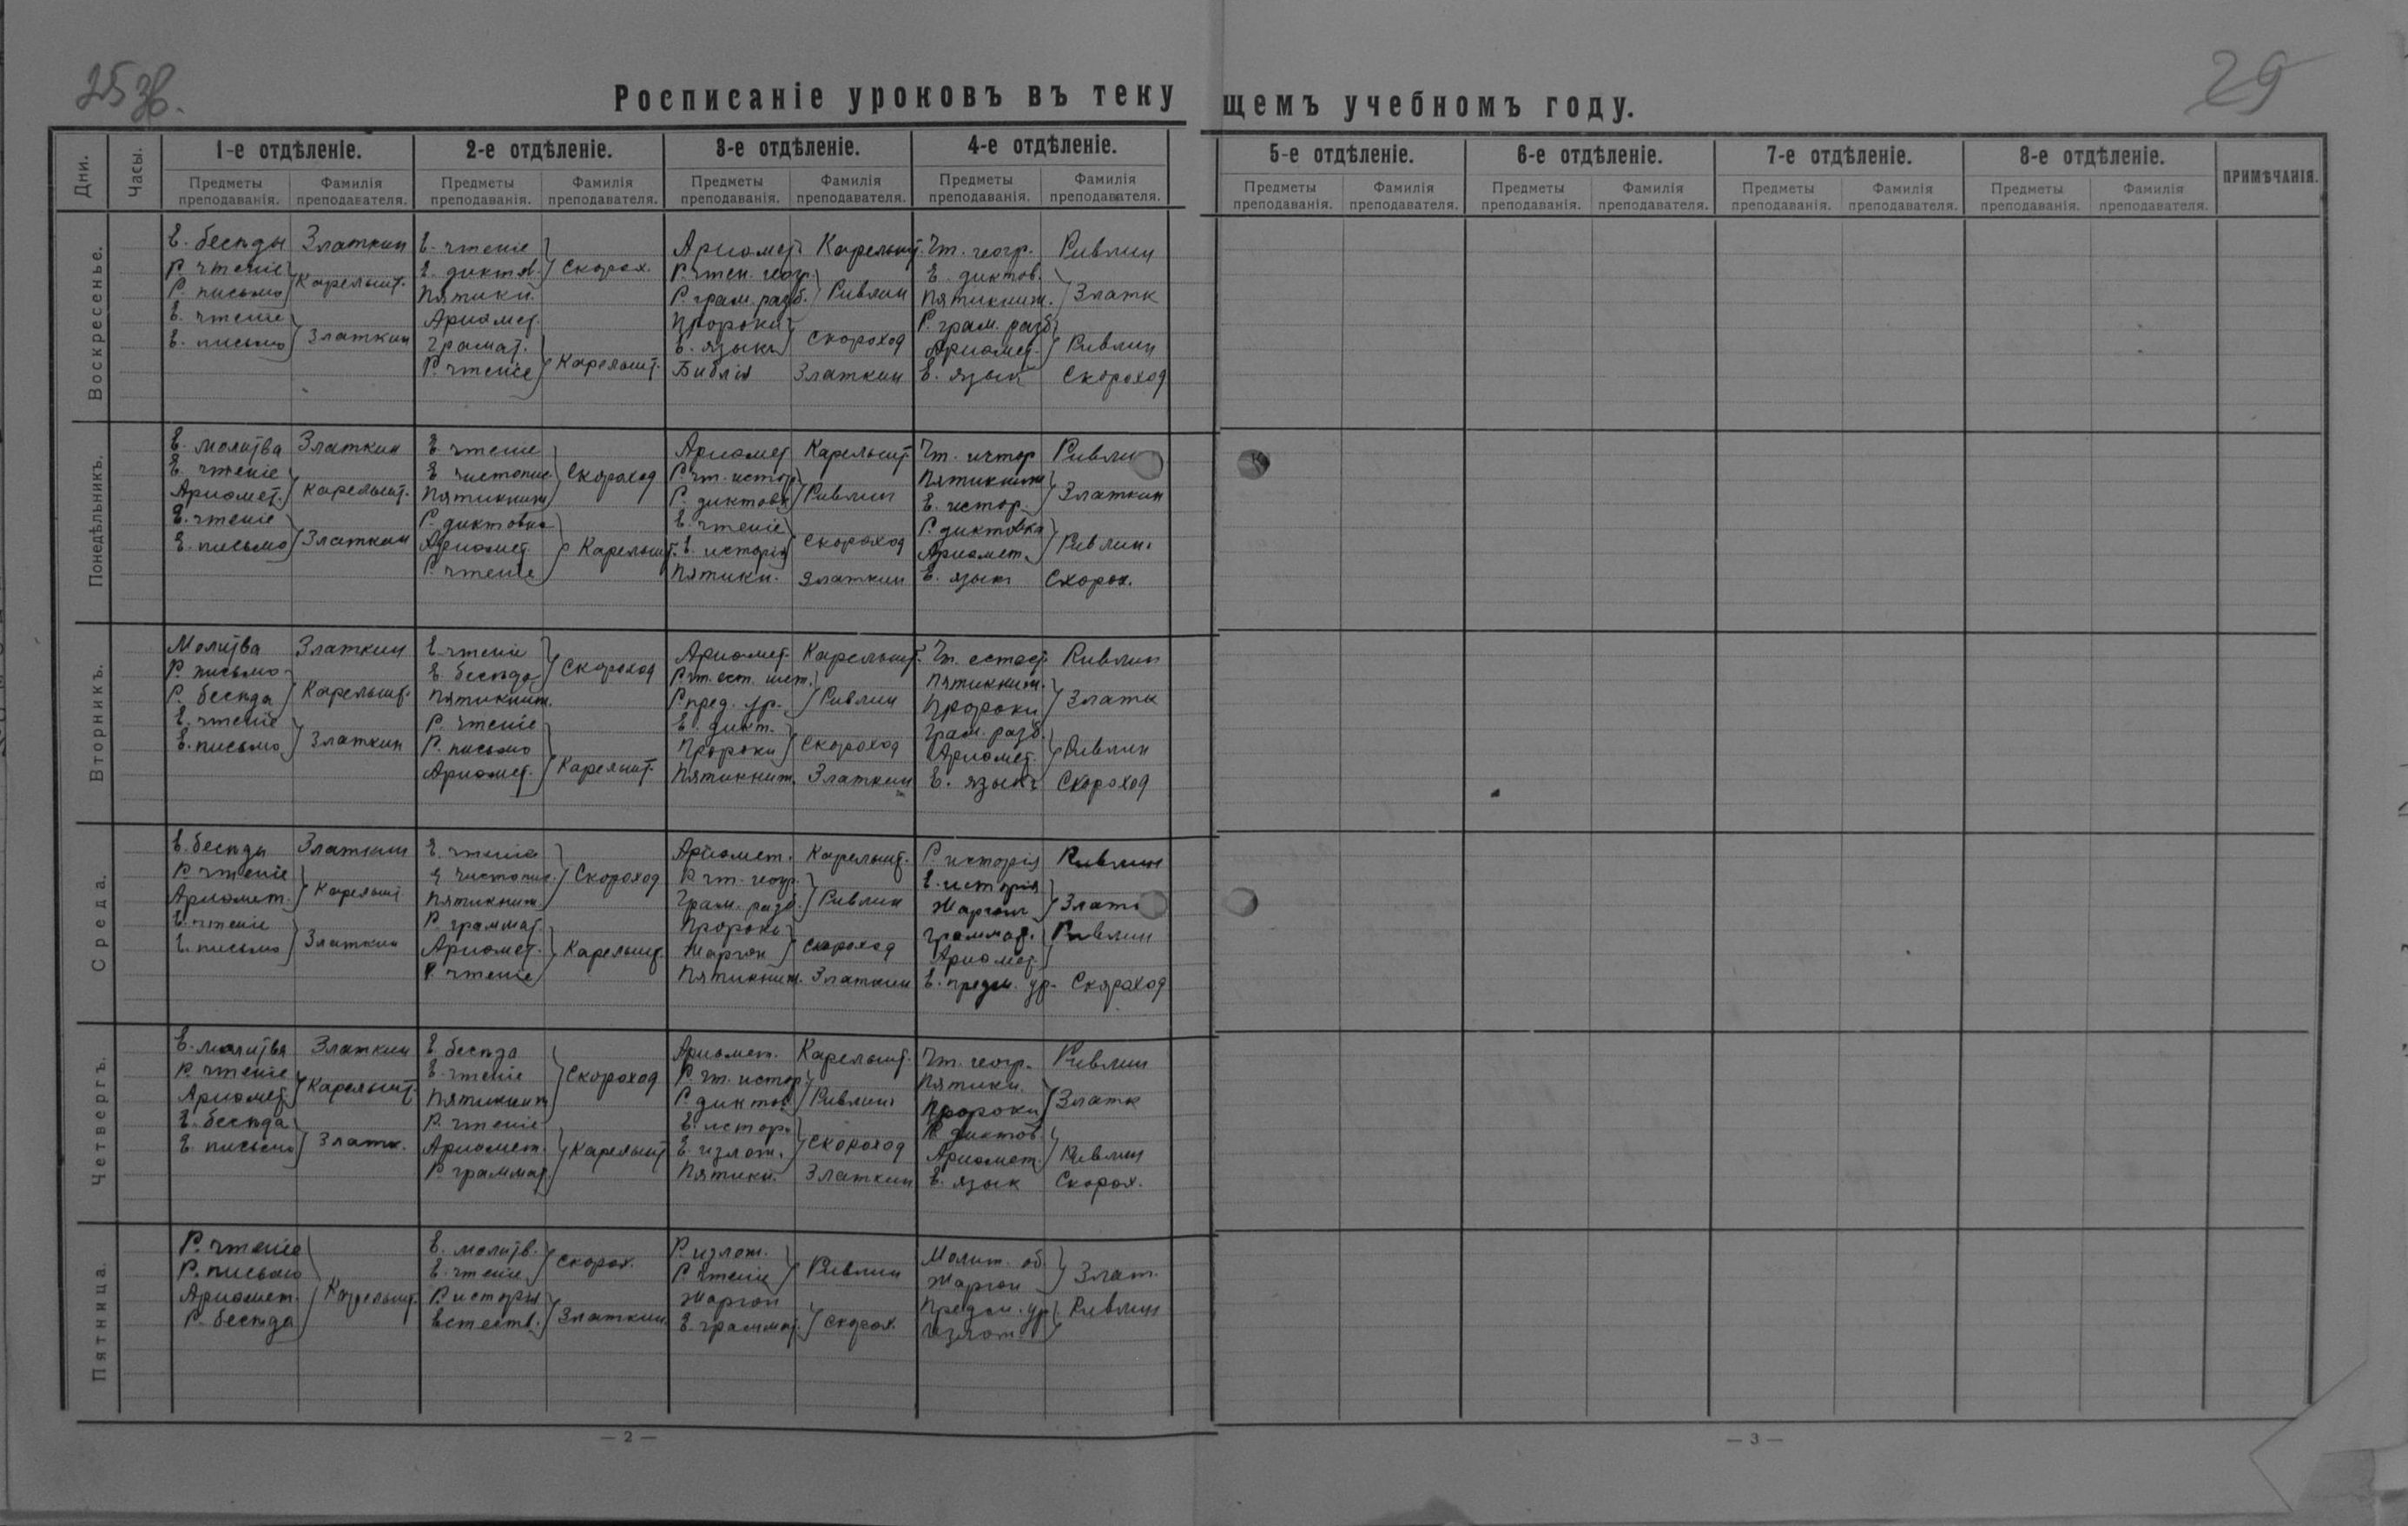 25 зв.
29
Росписаніе уроковъ въ текущемъ учебномъ году.
Дни. Часы. 1-е отдѣленіе. 2-е отдѣленіе. 3-е отдѣленіе. 4-е отдѣленіе. 5-е отдѣленіе. 6-е отдѣленіе. 7-е отдѣленіе. 8-е отдѣленіе. ПРИМѢЧАНІЯ.
Предметы преподаванія. Фамилія преподавателя. Предметы преподаванія. Фамилія преподавателя. Предметы преподаванія. Фамилія преподавателя. Предметы преподаванія. Фамилія преподавателя. Предметы преподаванія. Фамилія преподавателя. Предметы преподаванія. Фамилія преподавателя. Предметы преподаванія. Фамилія преподавателя. Предметы преподаванія. Фамилія преподавателя.
Воскресенье.
Е. бесѣды Златкин Е. чтеніе Ариѳмет. Карельшт. Чт. геогр. Ривлин
Р. чтеніе Карельшт. Е. диктов. Скорох. Р. чтен. геогр. Е. диктов.
Р. письмо Пятикн. Р. грам. разб. Ривлин Пятикниж. Златк
Е. чтеніе Ариѳмет. Пророки Р. грам. разб.
Е. письмо Златкин Грамат. Е. языкъ Скороход Ариѳмет. Ривлин
Р. чтеніе Карельшт. Библія Златкин Е. язык Скороход
Понедѣльникъ.
Е. молитва Златкин Е. чтеніе Ариѳмет Карельшт Чт. истор Ривлин
Е. чтеніе Е. чистопис. Скороход Р. чт. истор Пятикниж
Ариѳмет. Карельшт. Пятикниж Р. диктовк Ривлин Е. истор. Златкин
Е. чтеніе Р. диктовка Е. чтеніе Р. диктовка
Е. письмо Златкин Ариѳмет. Карельшт. Е. исторія Скороход Ариѳмет. Ривлин
Р. чтеніе Пятикн. Златкин Е. язык Скорох.
Вторникъ.
Молитва Златкин Е. чтеніе Ариѳмет. Карельшт. Чт. естест. Ривлин
Р. письмо Е. бесѣда Скороход Р. чт. ест. ист. Пятикниж.
Р. бесѣда Карельшт. Пятикниж. Р. пред. ур. Ривлин Пророки Златк
Е. чтеніе Р. чтеніе Е. дикт. Грам. разб.
Е. письмо Златкин Р. письмо Пророки Скороход Ариѳмет. Ривлин
Ариѳмет. Карельшт. Пятикниж. Златкин Е. языкъ Скороход
Среда.
Е. бесѣды Златкин Е. чтеніе Ариѳмет. Карельшт. Р. исторія Ривлин
Р. чтеніе Е. чистопис. Скороход Р. чт. геогр. Е. исторія
Ариѳмет. Карельшт Пятикниж. Грам. разб. Ривлин Жаргон Златк
Е. чтеніе Р. граммат. Пророки Граммат. Ривлин
Е. письмо Златкин Ариѳмет. Карельшт. Жаргон Скороход Ариѳмет.
Р. чтеніе Пятикниж. Златкин Е. предм. ур. Скороход
Четвергъ.
Е. молитва Златкин Е. бесѣда Ариѳмет. Карельшт. Чт. геогр. Ривлин
Р. чтеніе Е. чтеніе Скороход Р. чт. истор. Пятикн.
Ариѳмет. Карельшт. Пятикниж Р. диктов Ривлин Пророки Златк
Е. бесѣда Р. чтеніе Е. истор. Р. диктов.
Е. письмо Златк. Ариѳмет. Карельшт Е. излож. Скороход Ариѳмет. Ривлин
Р. граммат. Пятикн. Златкин Е. язык Скорох.
Пятница.
Р. чтеніе Е. молитв. Скорох. Р. излож. Молит. об.
Р. письмо Е. чтеніе Р. чтеніе Ривлин Жаргон Злат.
Ариѳмет. Карельшт. Р. исторія Жаргон Предм. ур. Ривлин
Р. бесѣда Естеств. Златкин Е. граммат. Скорох Излож.
— 2 —
— 3 —